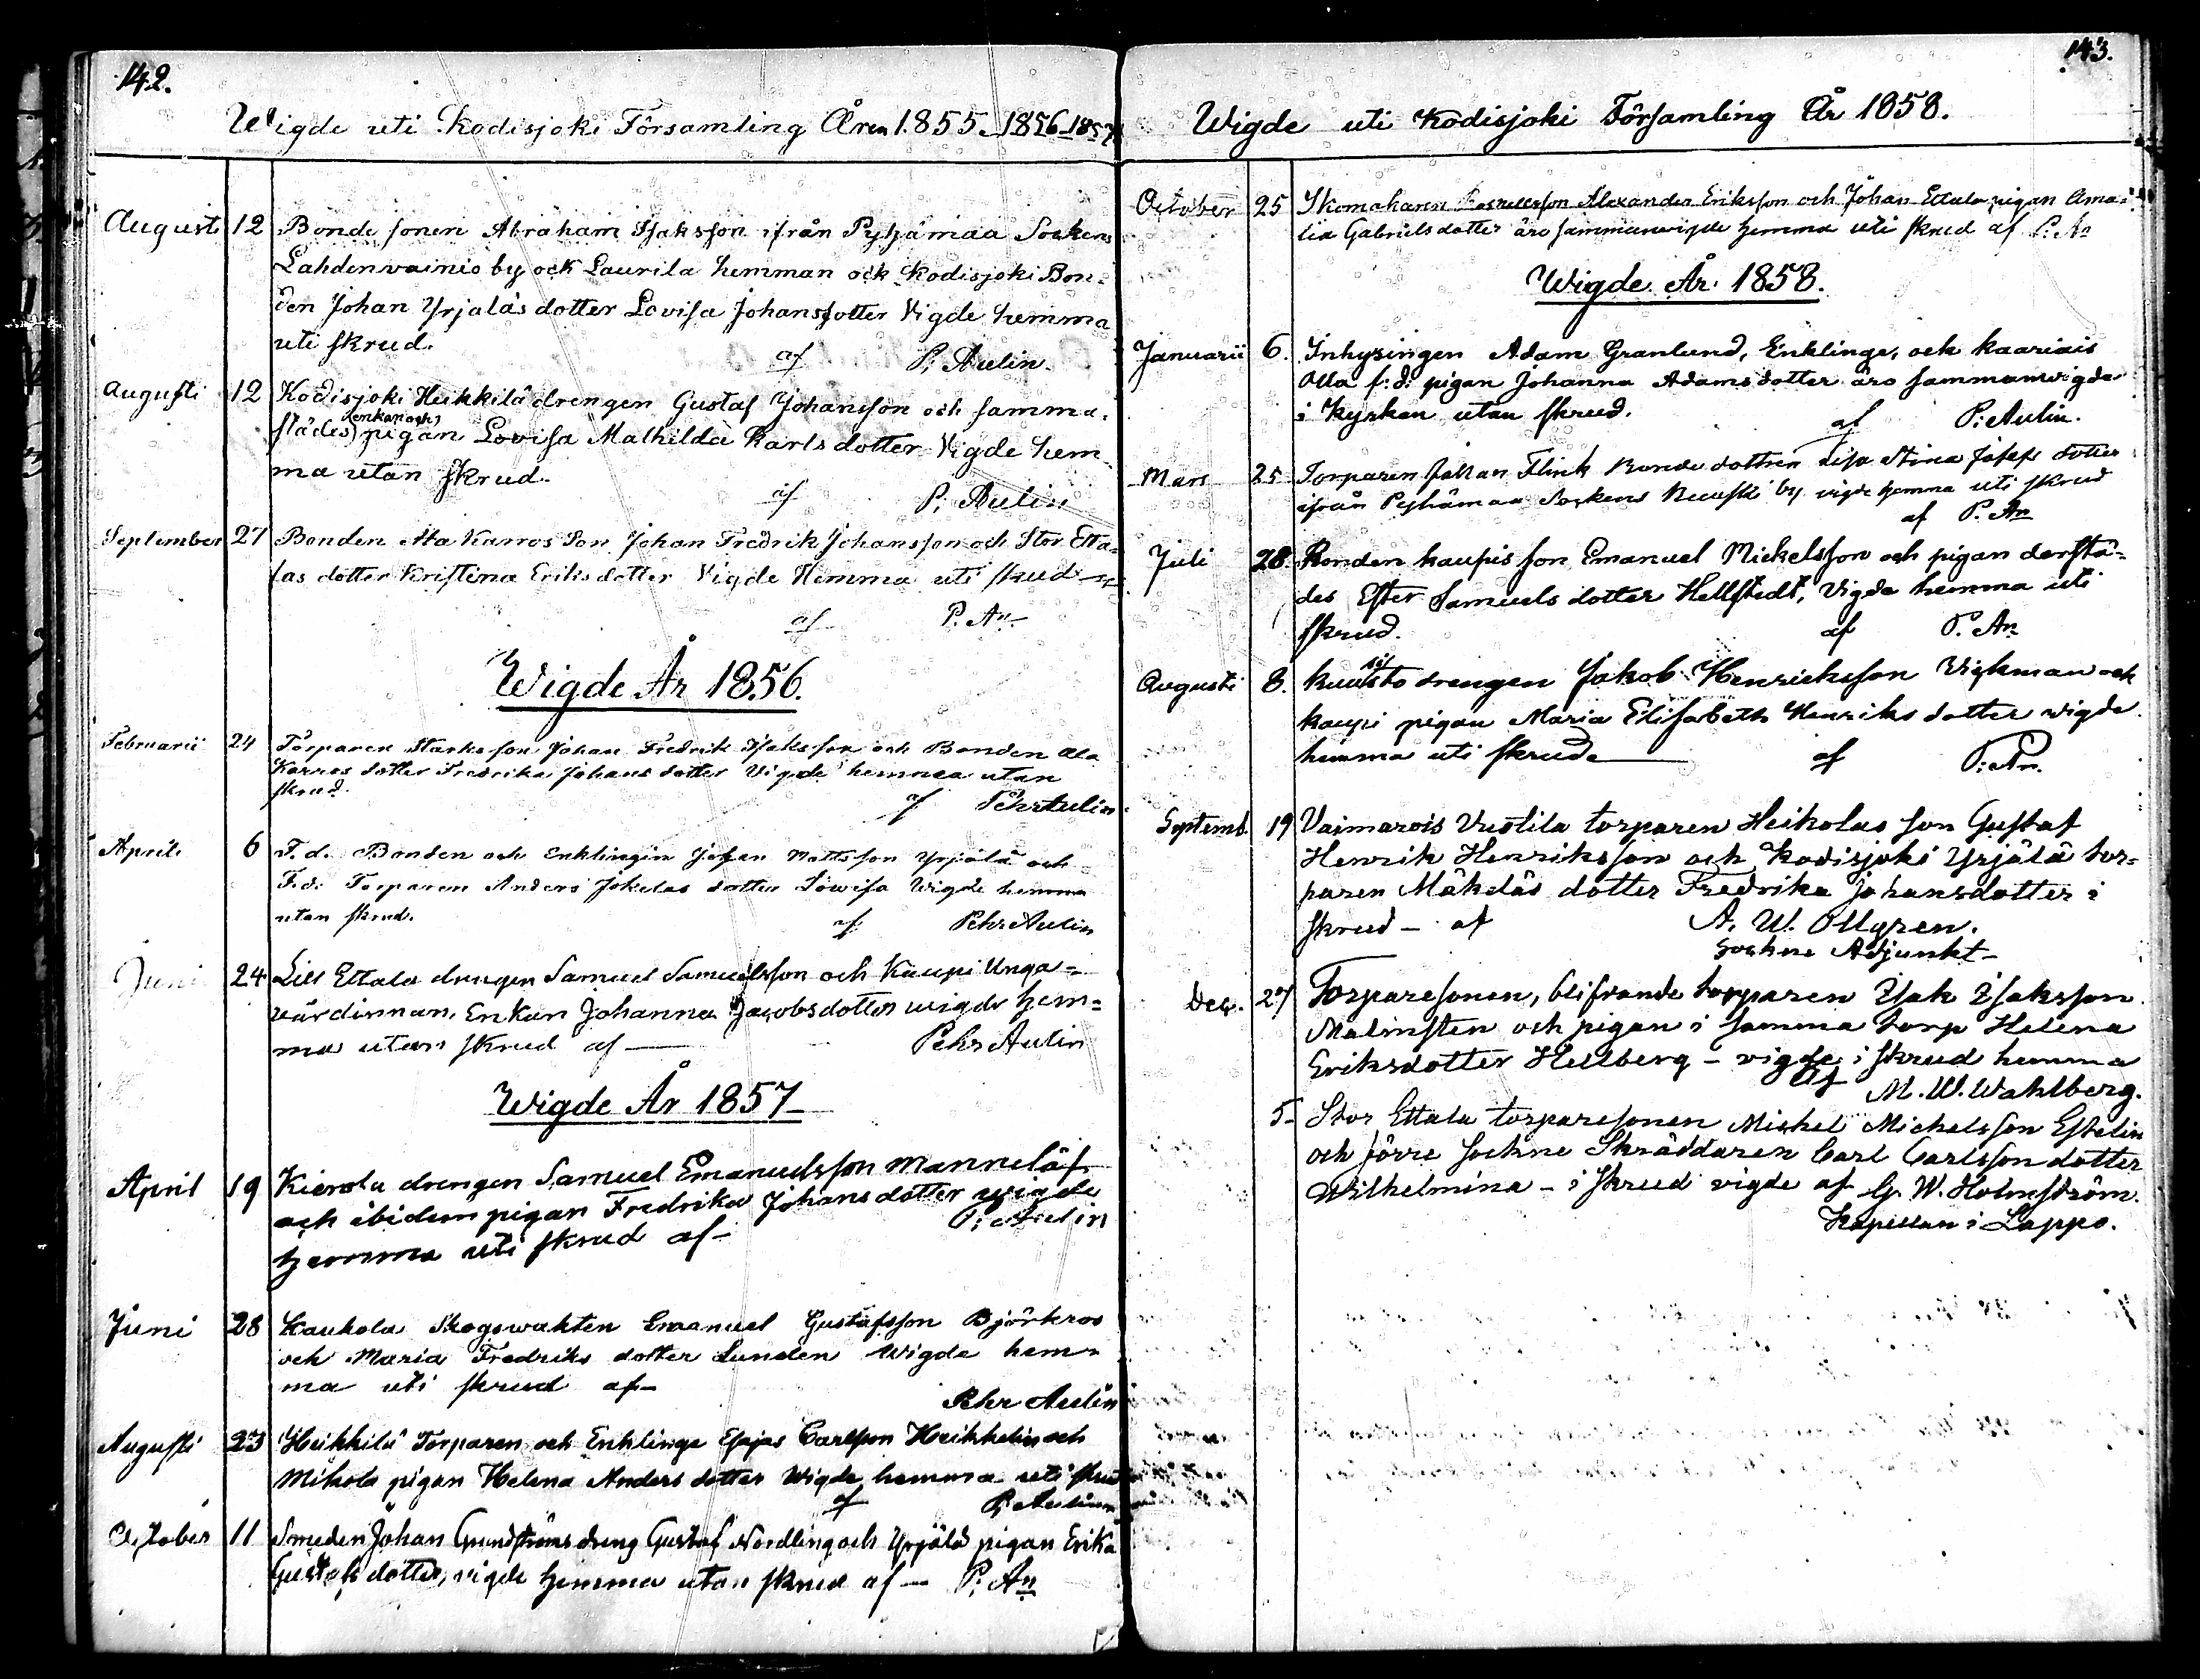 142.
Wigde uti Kodisjoki Församling Åren 1855-1856-1857
Augusti 12 Bonde sonen Abraham Isaksson ifrån Pyhämaa Sockens
Lahdenvainio by och Laurila hemman och Kodisjoki Bon-
den Johan Yrjäläs dotter Lovisa Johansdotter Vigde hemma
uti skrud.
af P. Aulin.
Augusti 12 Kodisjoki Heikkilä drengen Gustaf Johansson och samma-
städes (enkan och) pigan Lovisa Mathilda Karlsdotter Vigde hem-
ma utan skrud.
af P. Aulin
September 27 Bonden Ala Karros Son Johan Fredrik Johansson och Stor Etta-
las dotter Kristina Eriks dotter Vigde Hemma uti skrud
af P. An
Wigde År 1856.
Februarii 24 Torparen Starks son Johan Fredrik Isaksson och Bonden Ala
Karros dotter Fredrika Johans dotter Vigde hemma utan
skrud.
af Pehr Aulin
April 6 F.d. Bonden och Enklingen Johan Mattsson Yrjälä och
F.d. Torparen Anders Jokelas dotter Lowisa Wigde hemma
utan skrud.
af Pehr Aulin
Juni 24 Lill Ettala drengen Samuel Samuelsson och Kaupi Unga-
värdinnan, Enkan Johanna Jacobsdotter wigde hem-
ma utan skrud af — Pehr Aulin
Wigde År 1857
April 19 Kierola drengen Samuel Emanuelsson Mannelöf
och ibidem pigan Fredrika Johans dotter wigde
P. Aulin
hemma uti skrud af —
Juni 28 Kaukola Skogswakten Emanuel Gustafsson Björkroos
och Maria Fredriks dotter Lunden Wigde hem-
ma uti skrud af —
Pehr Aulin
Augusti 23 Heikkilä Torparen och Enklinge Esajas Carlsson Heikkelin och
Mikola pigan Helena Anders dotter Wigde hemma uti skrud
af P. Aulin
October 11 Smeden Johan Grundströms dreng Gustaf Nordling och Yrjälä pigan Erika
Gustafs dotter, vigde hemma utan skrud af — P. An
143.
Wigde uti Kodisjoki Församling År 1858.
October 25 Skomakaren Alexander Eriksson och Johan Ettala pigan Ama-
lia Gabriels dotter äro sammanvigde hemma uti skrud af P. An
Wigde År 1858.
Januarii 6. Inhysingen Adam Granlund, Enklinge, och Kaariais
Olla f:d: pigan Johanna Adams dotter äro sammanvigde
i Kyrkan utan skrud.
af P. Aulin.
Mars 25 Torparen Johan Flink Bonde dottren Lisa Stina Josefs dotter
ifrån Pyhämaa Sockens by vigde hemma uti skrud
af P. An
Juli 28. Bonden Kaupis son Emanuel Mickelsson och pigan derstä-
des Ester Samuels dotter Hellstedt, Vigde hemma uti
skrud. af P. An
Augusti 8. drengen Jakob Henricksson Vickman och
Kaupi pigan Maria Elisabeth Henriks dotter vigde
hemma uti skrud af P. An.
Septemb. 19 Vaimarois Uustila torparen Heikolas son Gustaf
Henrik Henriksson och Kodisjoki Yrjälä tor-
paren Mäkeläs dotter Fredrika Johansdotter i
skrud — af A. W. Ollgren.
Sockne Adjunkt —
Dec. 27 Torparesonen, blifvande torparen Isak Isaksson
Malmsten och pigan i samma torp Helena
Eriksdotter Hellberg — vigde i skrud hemma
af M. W. Wahlberg.
5 Stor Ettala torparesonen Mickel Mickelsson Estelin
och förre sockne Skräddaren Carl Carlsson dotter
Wilhelmina — i skrud vigde af G. W. Holmström.
Kapellan i Lappo.